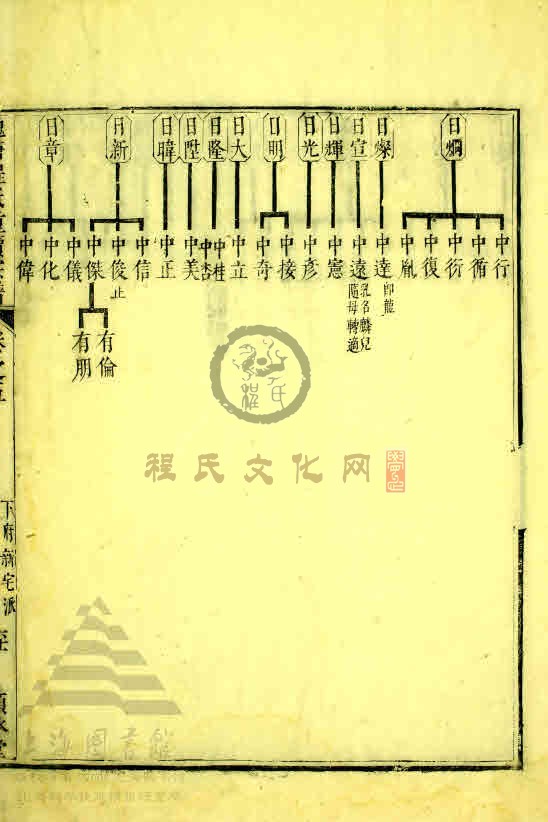 日烱
日燦
日宣
日輝
日光
日明
日大
日隆
日陞
日暐
日新
日章
中行
中循
中衍
中復
中胤
中達
即龍
中遠
乳名麟兒
隨母轉適
中憲
中彥
中接
中奇
中立
中桂
中杏
中美
中正
中信
中俊
止
中傑
中儀
中化
中偉
有倫
有朋
下府新宅派
程氏
程氏文化网
上海图书館